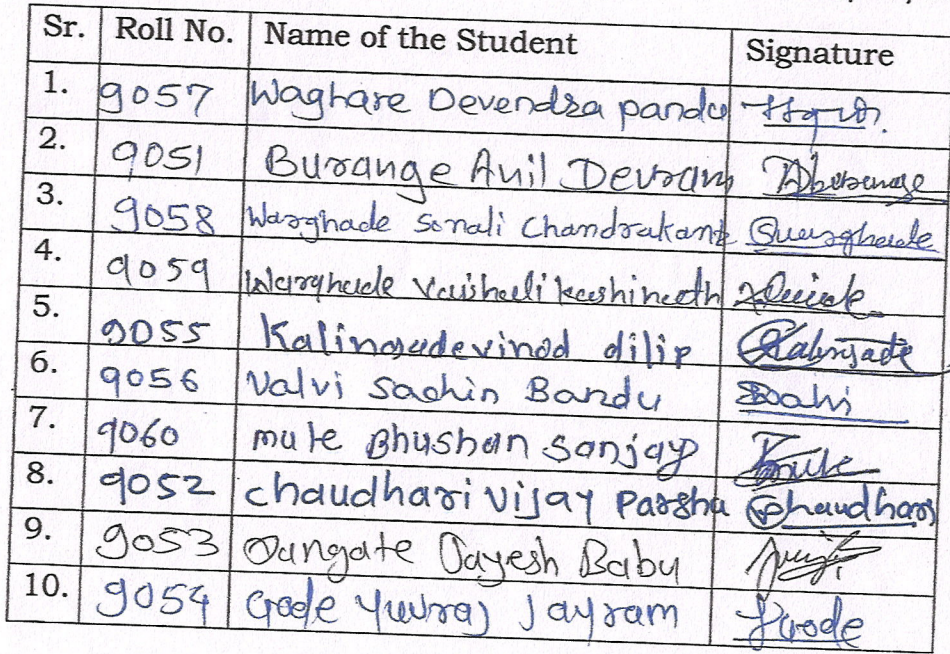 Sr. Roll No. Name of the Student Signature
1. 9057 Waghare Devendra pandu
2. 9051 Burange Anil Devram Aburange
3. 9058 Warghade Sonali Chandrakant Swarghade
4. 9059 Warghade Vaishali kashinath
5. 9055 Kalingadevinod dilip Kalingade
6. 9056 Valvi Sachin Bandu
7. 9060 mute Bhushan Sanjay mute
8. 9052 chaudhari vijay Parshu Chaudhari
9. 9053 Dangate Jayesh Babu
10. 9054 Gode Yuvraj Jayram